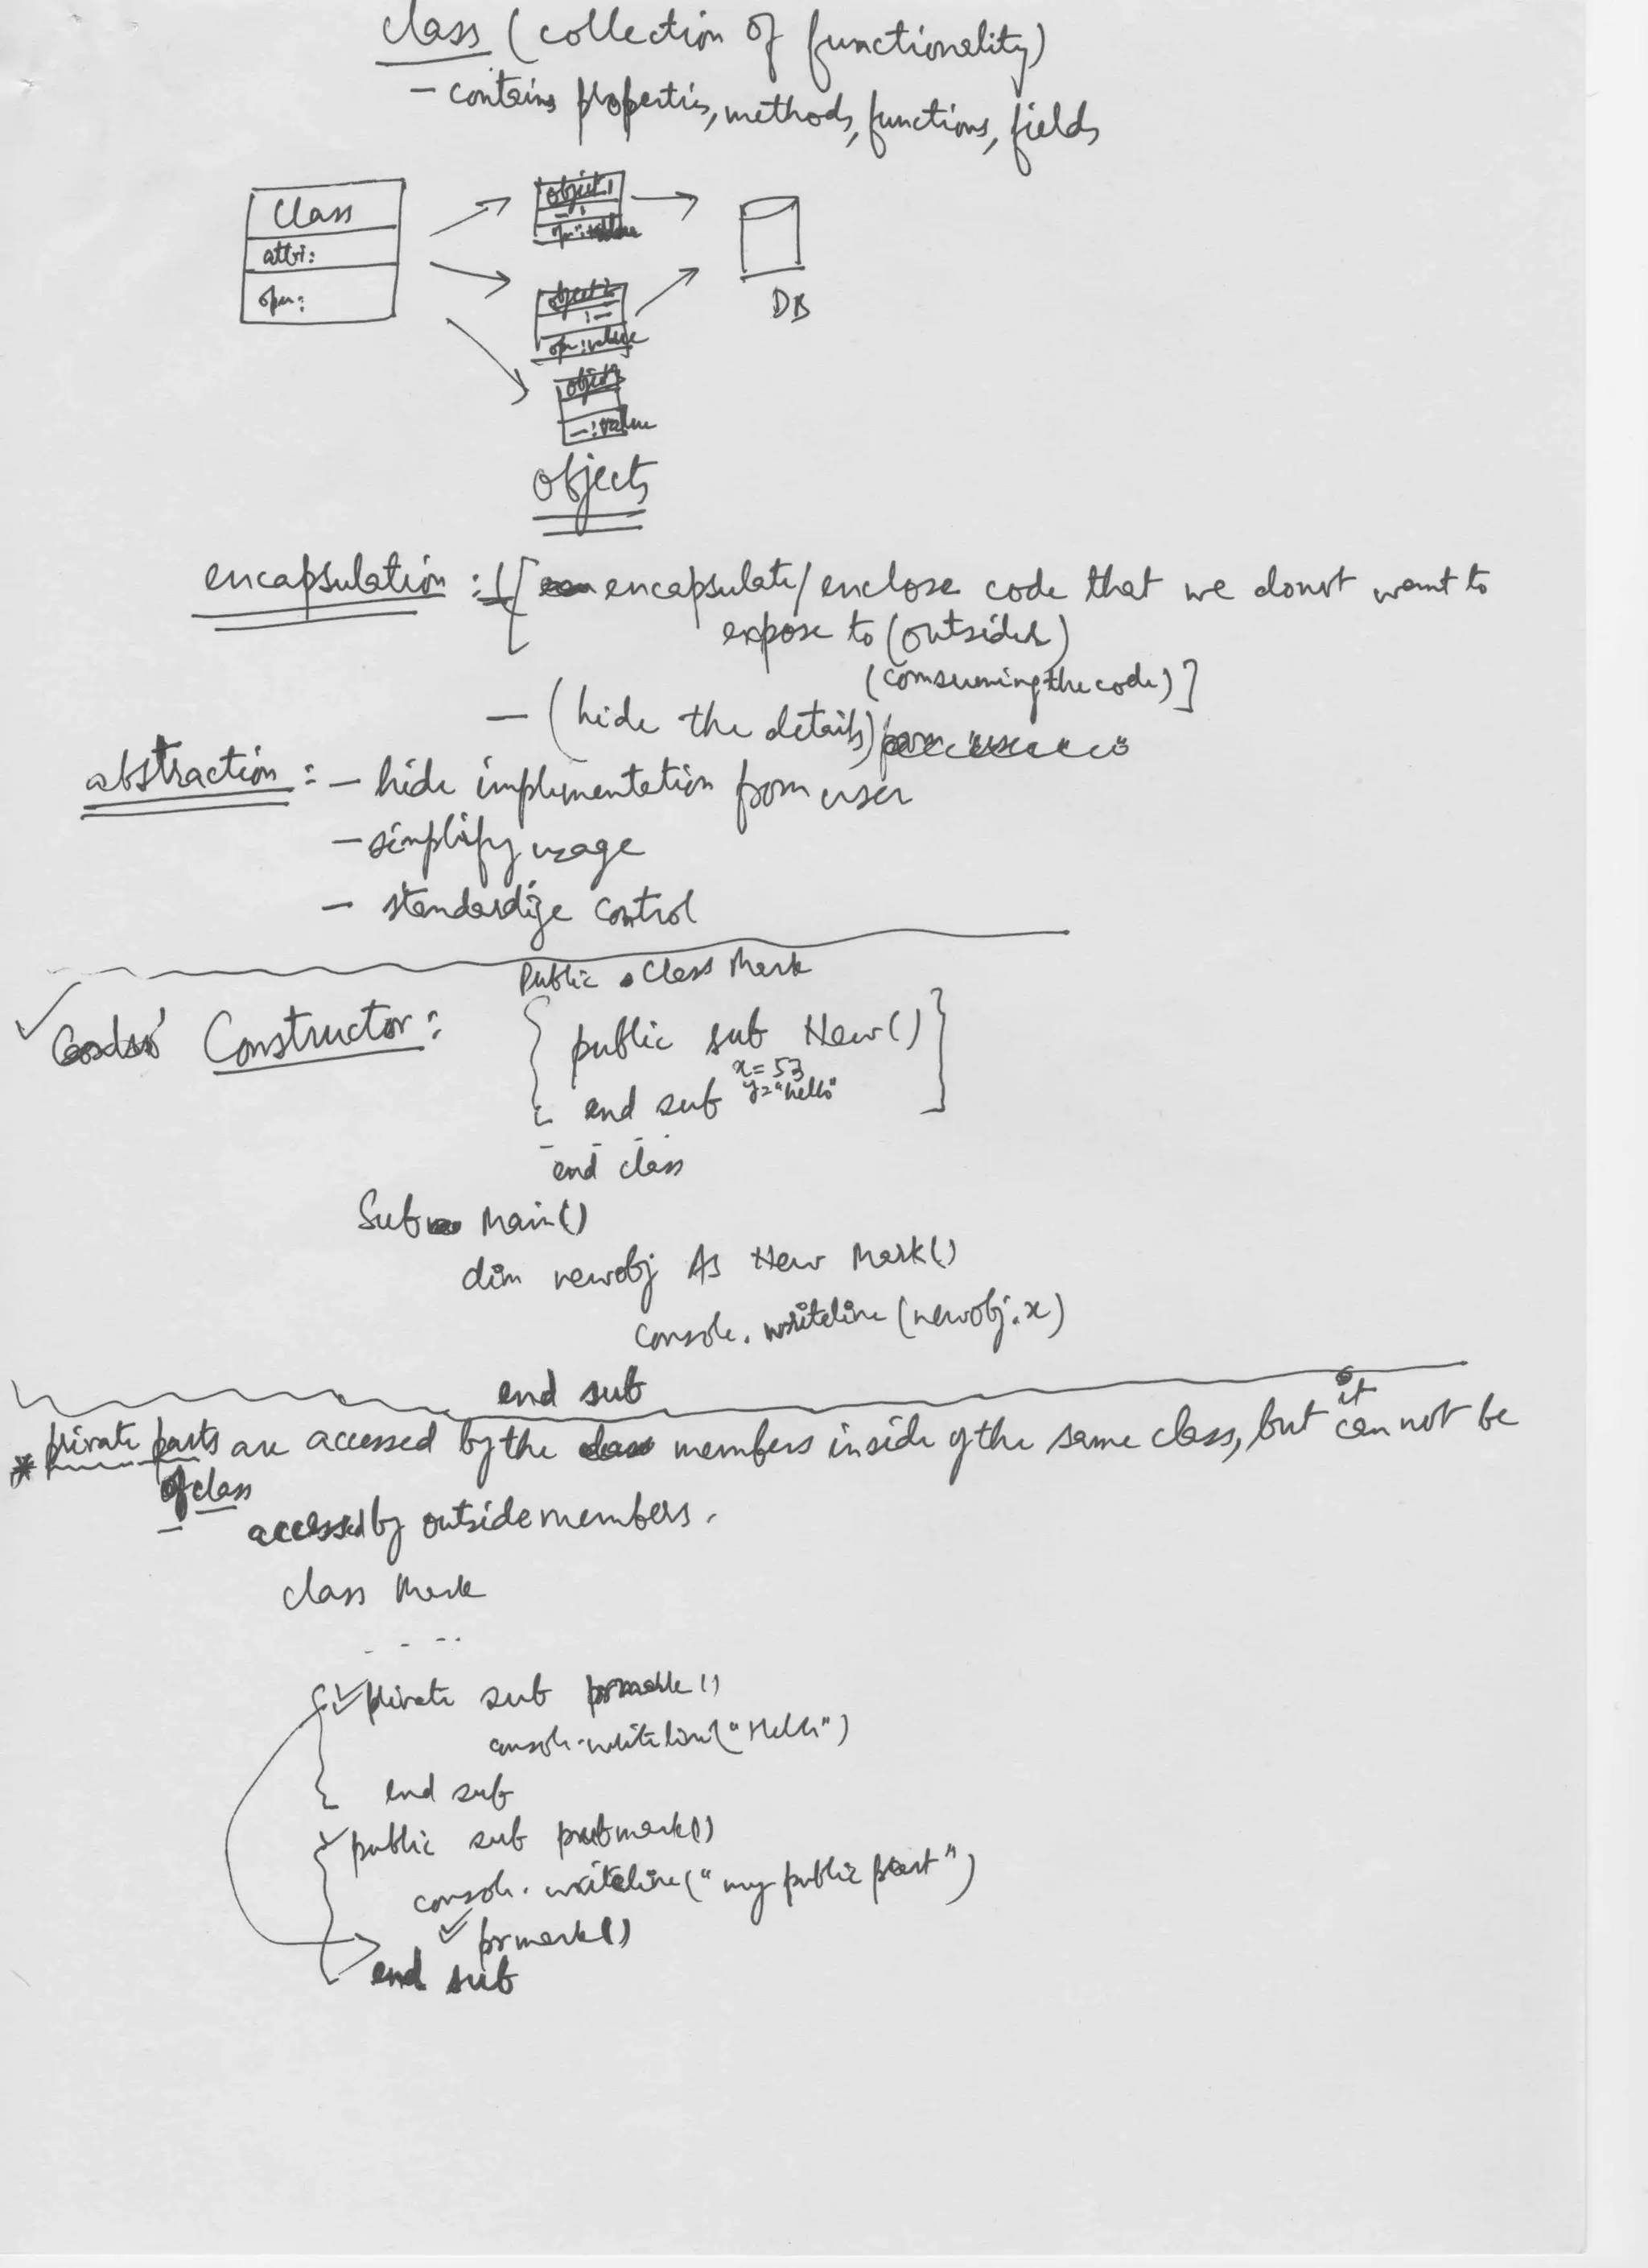 class (collection of functionality)
- contains properties, methods, functions, fields
class
attri:
oper:
object1
object2
:-
opr:value
object3
-:value
DB
objects
encapsulation : [ encapsulate/enclose code that we donot want to
expose to (outsider)
(comsuming the code)]
- (hide the details)
abstraction : - hide implementation from user
- simplify usage
- standardize control
Public class Mark
Constructor :
public sub New()
x=53
y="hello"
end sub
end class
Sub Main()
dim newobj As New Mark()
console.writeline(newobj.x)
end sub
* private parts are accessed by the members inside of the same class, but it can not be
of class
accessed by outside members.
class Mark
- - - -
private sub prmark()
console.writeline("Hello")
end sub
public sub pubmark()
console.writeline("my public part")
prmark()
end sub